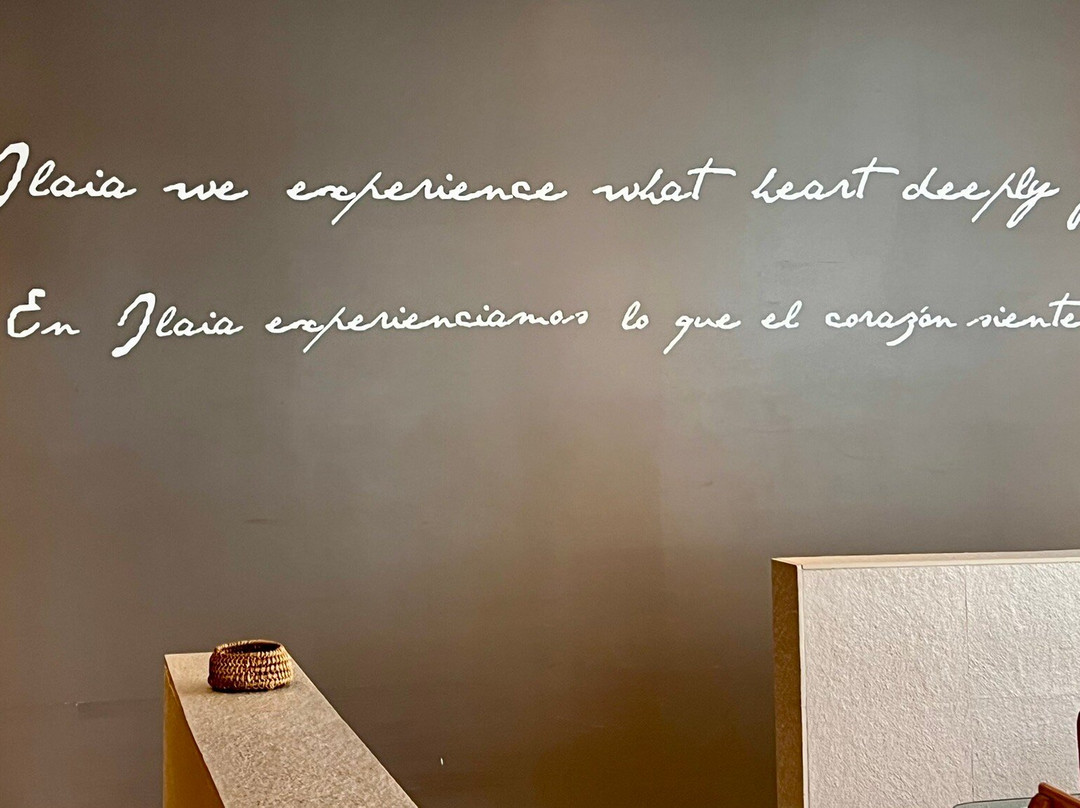 Ilaia we experience what heart deeply
En Ilaia experienciamos lo que el corazón siente